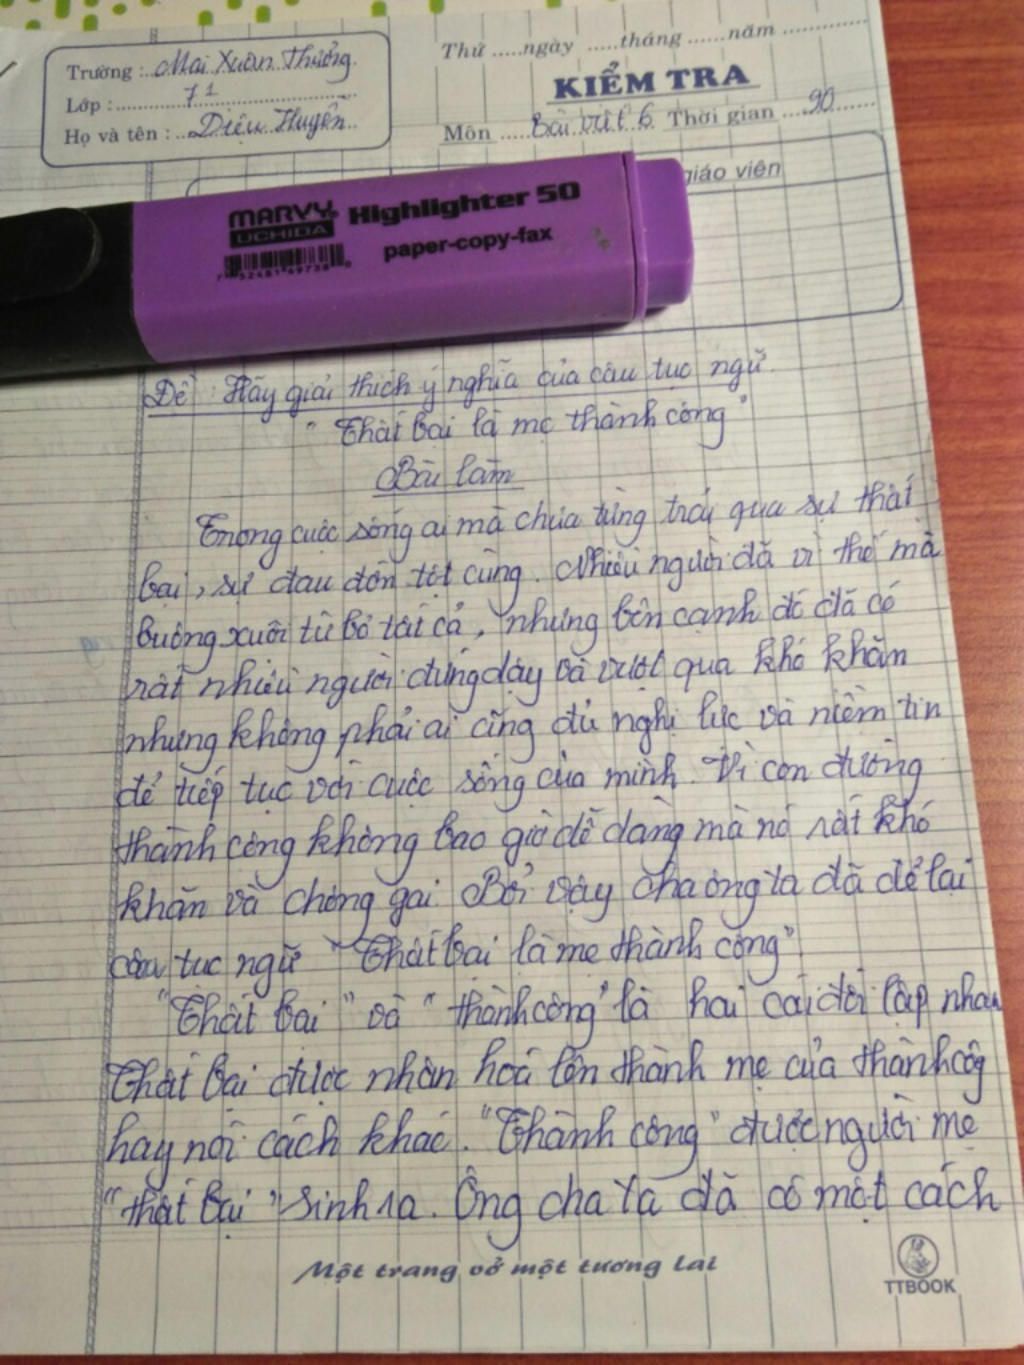 Thứ .....ngày .....tháng ......năm ............
Trường : Mai Xuân Thưởng
KIỂM TRA
Lớp : 7¹
Họ và tên : Diệu Huyền
Môn ..... Bài viết 6 Thời gian ....90......
giáo viên
MARVY Highlighter 50
UCHIDA paper-copy-fax
Đề : Hãy giải thích ý nghĩa của câu tục ngữ.
" Thất bại là mẹ thành công "
Bài làm
Trong cuộc sống ai mà chưa từng trải qua sự thất
bại, sự đau đớn tột cùng. Nhiều người đã vì thế mà
buông xuôi từ bỏ tất cả, nhưng bên cạnh đó đã có
rất nhiều người đứng dậy và vượt qua khó khăn
nhưng không phải ai cũng đủ nghị lực và niềm tin
để tiếp tục với cuộc sống của mình. Vì con đường
thành công không bao giờ dễ dàng mà nó rất khó
khăn và chông gai. Bởi vậy cha ông ta đã để lại
câu tục ngữ "Thất bại là mẹ thành công".
"Thất bại" và "thành công" là hai cái đối lập nhau
Thất bại được nhân hoá lên thành mẹ của thành côg
hay nói cách khác. "Thành công" được người mẹ
"thất bại" sinh ra. Ông cha ta đã có một cách
Một trang vở một tương lai
TTBOOK